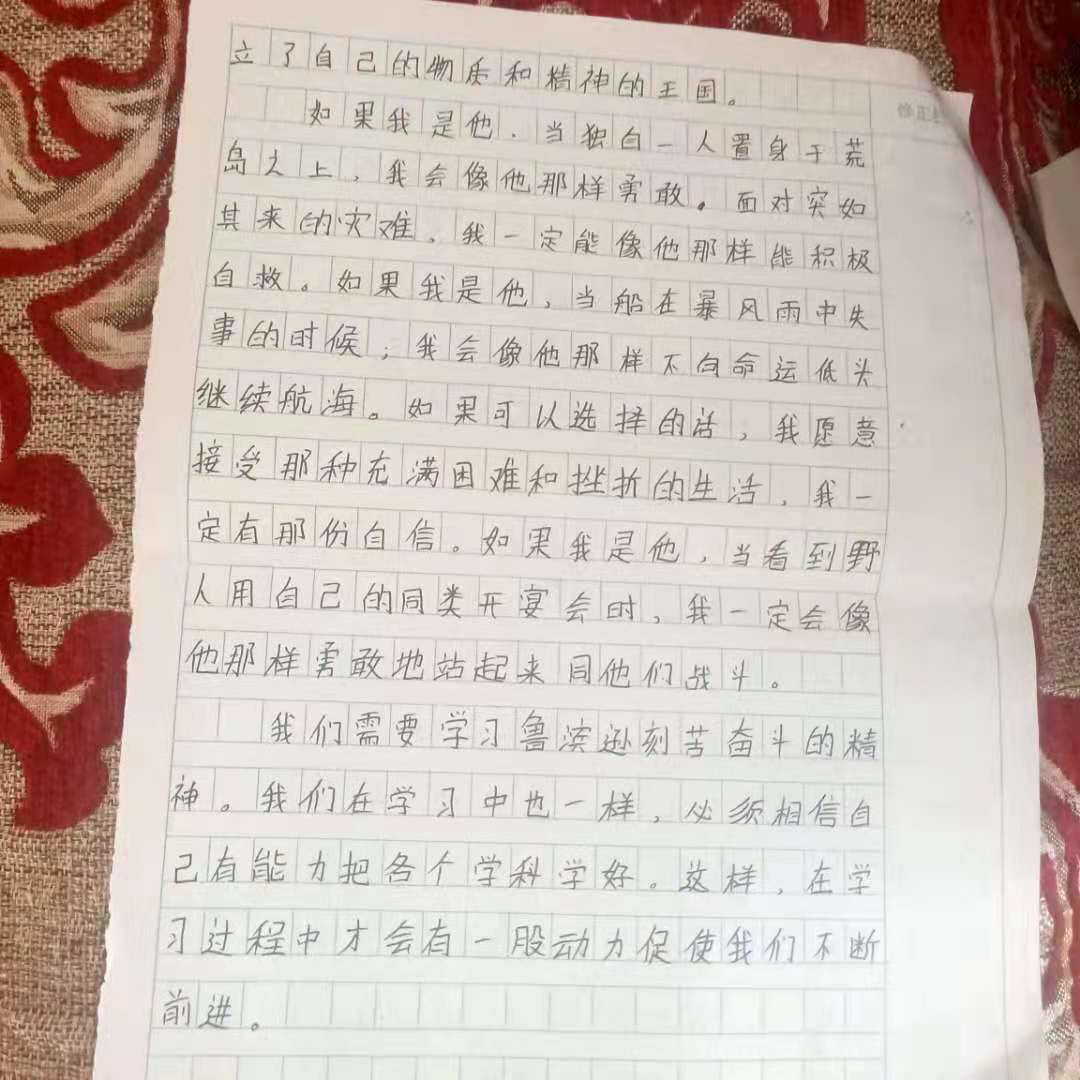 立了自己的物质和精神的王国。
如果我是他，当独自一人置身于荒
岛之上，我会像他那样勇敢。面对突如
其来的灾难，我一定能像他那样能积极
自救。如果我是他，当船在暴风雨中失
事的时候，我会像他那样不向命运低头
继续航海。如果可以选择的话，我愿意
接受那种充满困难和挫折的生活，我一
定有那份自信。如果我是他，当看到野
人用自己的同类开宴会时，我一定会像
他那样勇敢地站起来同他们战斗。
我们需要学习鲁滨逊刻苦奋斗的精
神。我们在学习中也一样，必须相信自
己有能力把各个学科学好。这样，在学
习过程中才会有一股动力促使我们不断
前进。